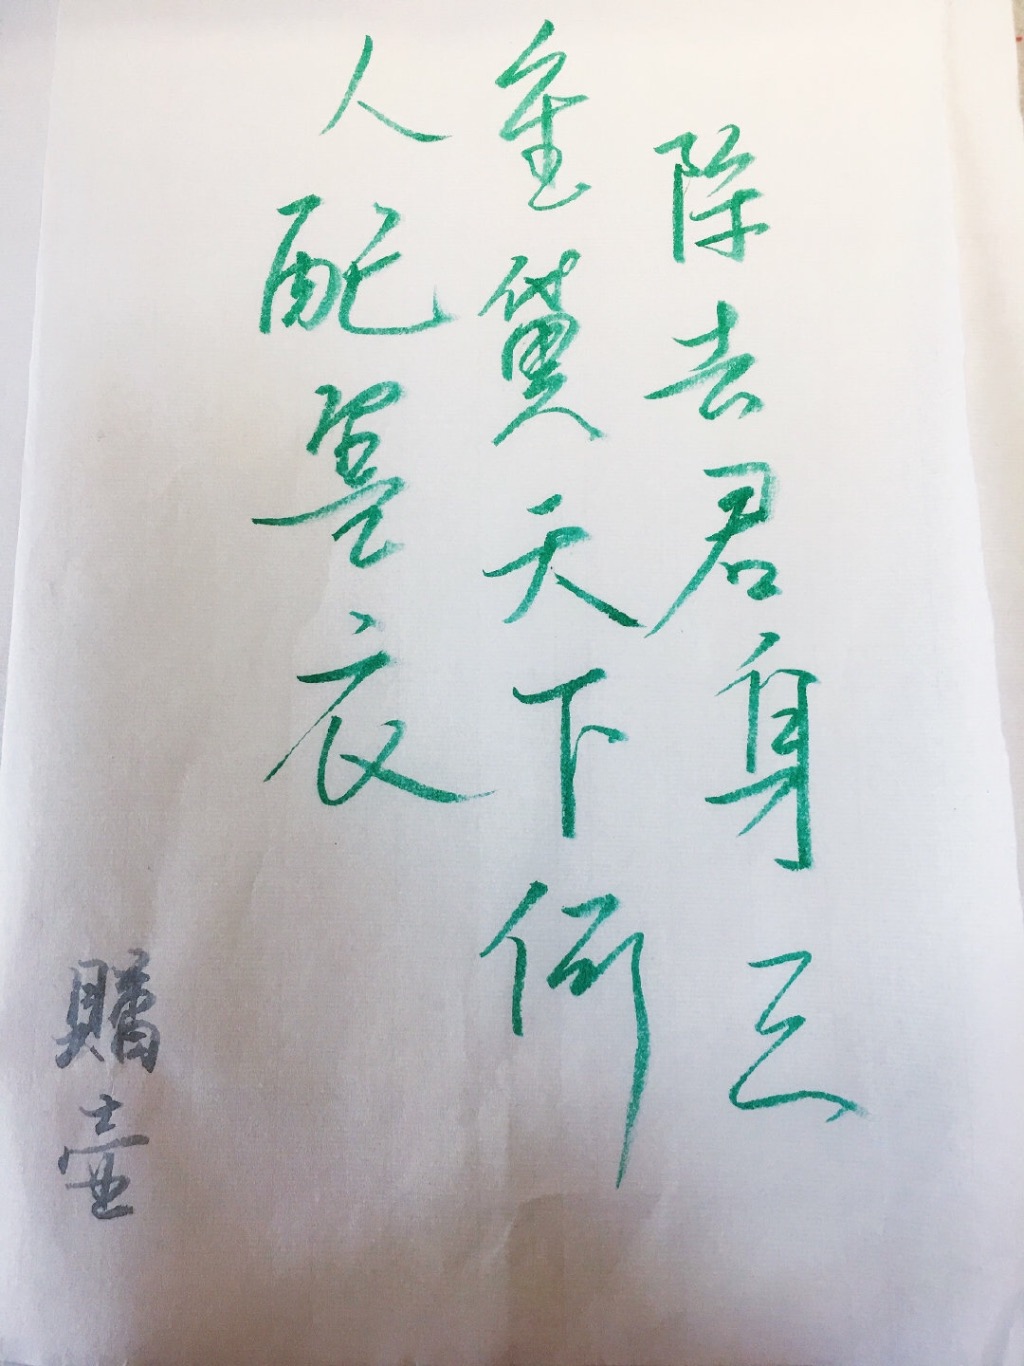 除去君身三
重翼天下何
人配墨衣
贈壺